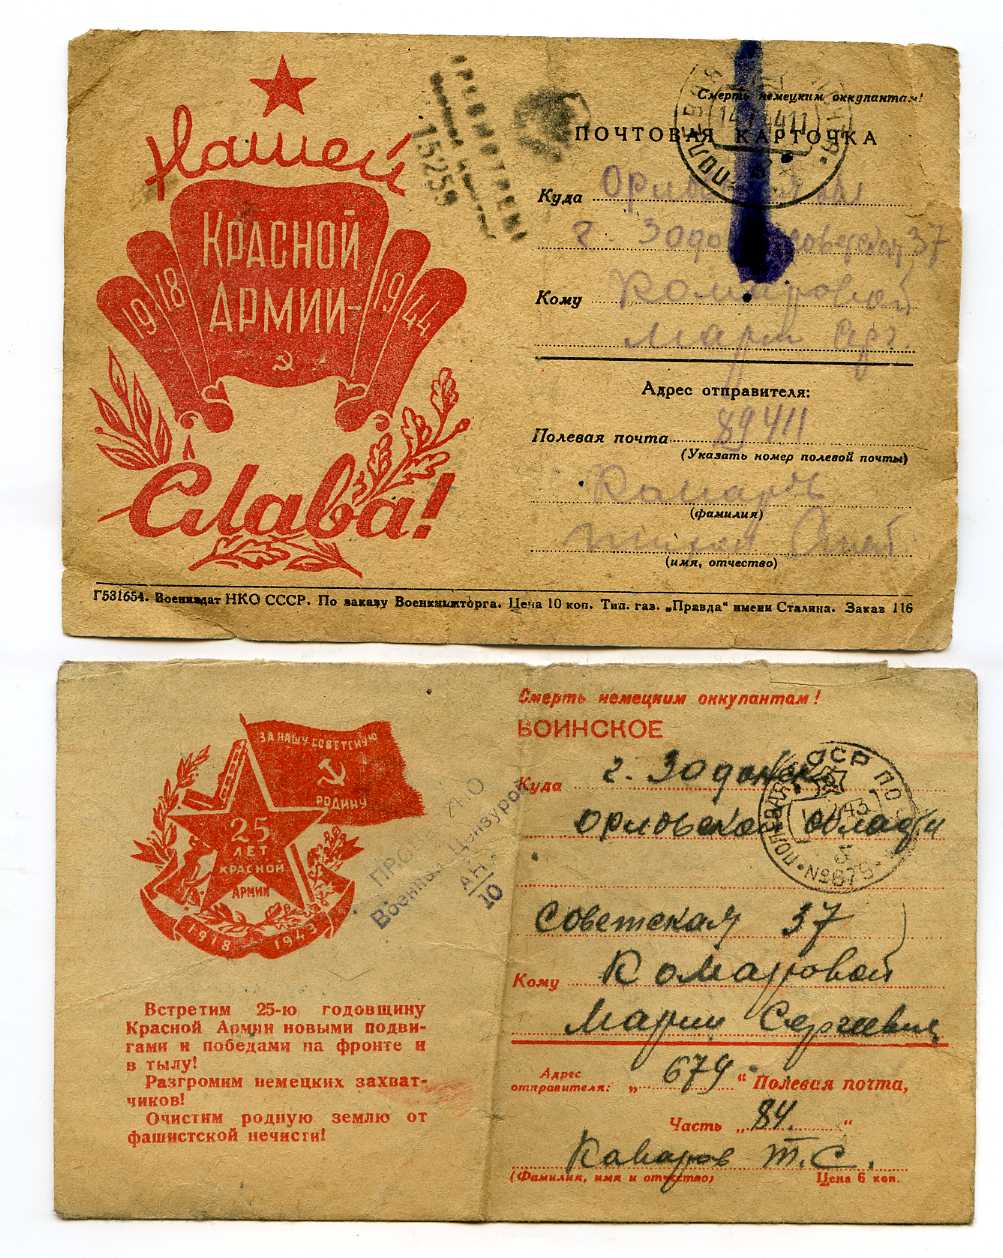 Нашей
КРАСНОЙ
АРМИИ-
1918
1944
Слава!
ПРОСМОТРЕНО
15259
Смерть немецким оккупантам!
ПОЧТОВАЯ КАРТОЧКА
Куда
г. Задонск Советская 37
Кому Комаровой
Марии
Адрес отправителя:
Полевая почта 89411
(Указать номер полевой почты)
Комаров
(фамилия)
(имя, отчество)
Г531654. Воениздат НКО СССР. По заказу Военкнижторга. Цена 10 коп. Тип. газ. „Правда“ имени Сталина. Заказ 116
ЗА НАШУ СОВЕТСКУЮ
РОДИНУ
25
ЛЕТ
КРАСНОЙ
АРМИИ
1918 1943
Встретим 25-ю годовщину
Красной Армии новыми подви-
гами и победами на фронте и
в тылу!
Разгромим немецких захват-
чиков!
Очистим родную землю от
фашистской нечисти!
Военной Цензурой
10
Смерть немецким оккупантам!
ВОИНСКОЕ
Куда г. Задонск
Орловской области
№675
Советская 37
Кому Комаровой
Марии Сергеевне
Адрес
отправителя: „ 674 “ Полевая почта,
Часть „ 84. “
Комаров Т.С.
(Фамилия, имя и отчество) Цена 6 коп.